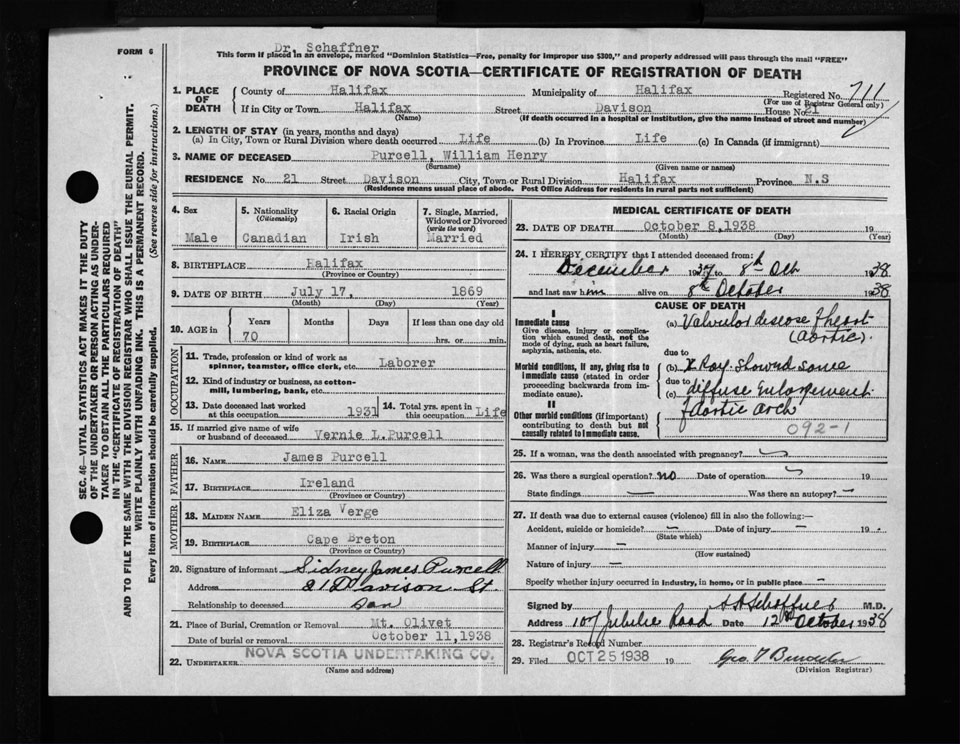 FORM 6
Dr. Schaffner
This form if placed in an envelope, marked "Dominion Statistics—Free, penalty for improper use $300," and properly addressed will pass through the mail "FREE"
PROVINCE OF NOVA SCOTIA—CERTIFICATE OF REGISTRATION OF DEATH
1. PLACE OF DEATH
County of Halifax Municipality of Halifax Registered No. 711
(For use of Registrar General only)
If in City or Town Halifax Street Davison House No. 21
(Name) (If death occurred in a hospital or institution, give the name instead of street and number)
2. LENGTH OF STAY (in years, months and days)
(a) In City, Town or Rural Division where death occurred Life (b) In Province Life (c) In Canada (if immigrant)
3. NAME OF DECEASED Purcell, William Henry
(Surname) (Given name or names)
RESIDENCE No. 21 Street Davison City, Town or Rural Division Halifax Province N.S
(Residence means usual place of abode. Post Office Address for residents in rural parts not sufficient)
4. Sex
Male
5. Nationality
(Citizenship)
Canadian
6. Racial Origin
Irish
7. Single, Married, Widowed or Divorced
(write the word)
Married
8. BIRTHPLACE Halifax
(Province or Country)
9. DATE OF BIRTH July 17, 1869
(Month) (Day) (Year)
10. AGE in
Years Months Days If less than one day old
70 hrs. or min.
OCCUPATION
11. Trade, profession or kind of work as spinner, teamster, office clerk, etc. Laborer
12. Kind of industry or business, as cotton-mill, lumbering, bank, etc.
13. Date deceased last worked at this occupation 1931
14. Total yrs. spent in this occupation Life
15. If married give name of wife or husband of deceased Vernie L. Purcell
FATHER
16. Name James Purcell
17. Birthplace Ireland
(Province or Country)
MOTHER
18. Maiden Name Eliza Verge
19. Birthplace Cape Breton
(Province or Country)
20. Signature of informant Sidney James Purcell
Address 21 Davison St.
Relationship to deceased son
21. Place of Burial, Cremation or Removal Mt. Olivet
Date of burial or removal October 11, 1938
22. UNDERTAKER NOVA SCOTIA UNDERTAKING CO.
(Name and address)
MEDICAL CERTIFICATE OF DEATH
23. DATE OF DEATH October 8, 1938 19
(Month) (Day) (Year)
24. I HEREBY CERTIFY that I attended deceased from:
December 1937 to 8th Oct 1938
and last saw him alive on 8th October 1938
CAUSE OF DEATH
I
Immediate cause
Give disease, injury or complication which caused death, not the mode of dying, such as heart failure, asphyxia, asthenia, etc.
(a) Valvular disease of heart
(aortic).
due to
Morbid conditions, if any, giving rise to immediate cause (stated in order proceeding backwards from immediate cause)
(b) X Ray showed some
due to
(c) diffuse enlargement
of aortic arch
II
Other morbid conditions (if important) contributing to death but not causally related to immediate cause.
092-1
25. If a woman, was the death associated with pregnancy?
26. Was there a surgical operation? no Date of operation 19
State findings — Was there an autopsy? —
27. If death was due to external causes (violence) fill in also the following:—
Accident, suicide or homicide? — Date of injury — 19
(State which)
Manner of injury —
(How sustained)
Nature of injury —
Specify whether injury occurred in industry, in home, or in public place —
Signed by M.D.
Address 107 Jubilee Road Date 12th October 1938
28. Registrar's Record Number
29. Filed OCT 25 1938 19
(Division Registrar)
SEC. 46—VITAL STATISTICS ACT MAKES IT THE DUTY
OF THE UNDERTAKER OR PERSON ACTING AS UNDER-
TAKER TO OBTAIN ALL THE PARTICULARS REQUIRED
IN THE "CERTIFICATE OF REGISTRATION OF DEATH"
AND TO FILE THE SAME WITH THE DIVISION REGISTRAR WHO SHALL ISSUE THE BURIAL PERMIT.
WRITE PLAINLY WITH UNFADING INK. THIS IS A PERMANENT RECORD.
Every item of information should be carefully supplied. (See reverse side for instructions.)